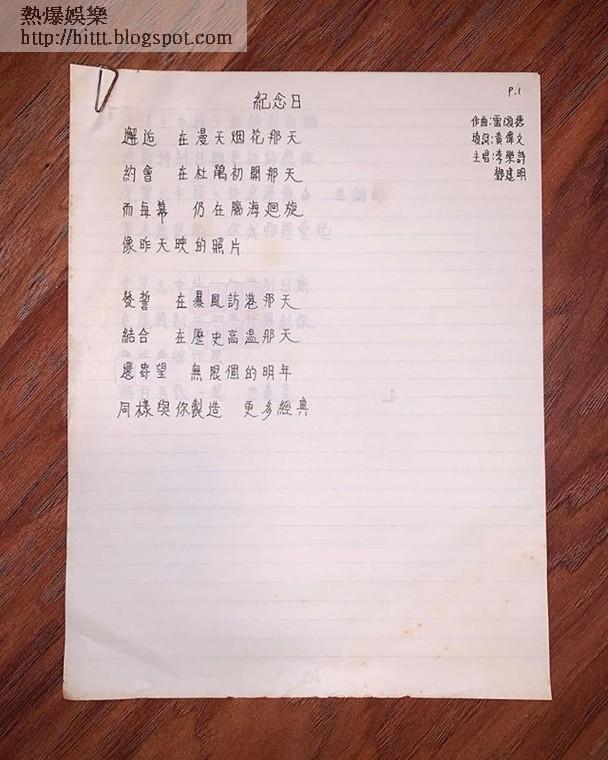 熱爆娛樂
http://hittt.blogspot.com
P.1
紀念日
作曲:雷頌德
填詞:黃偉文
主唱:李樂詩
鄧建明
邂逅 在漫天烟花那天
約會 在杜鵑初開那天
而每幕 仍在腦海迴旋
像昨天映的照片
發誓 在暴風訪港那天
結合 在歷史高溫那天
還寄望 無限個的明年
同樣與你製造 更多經典